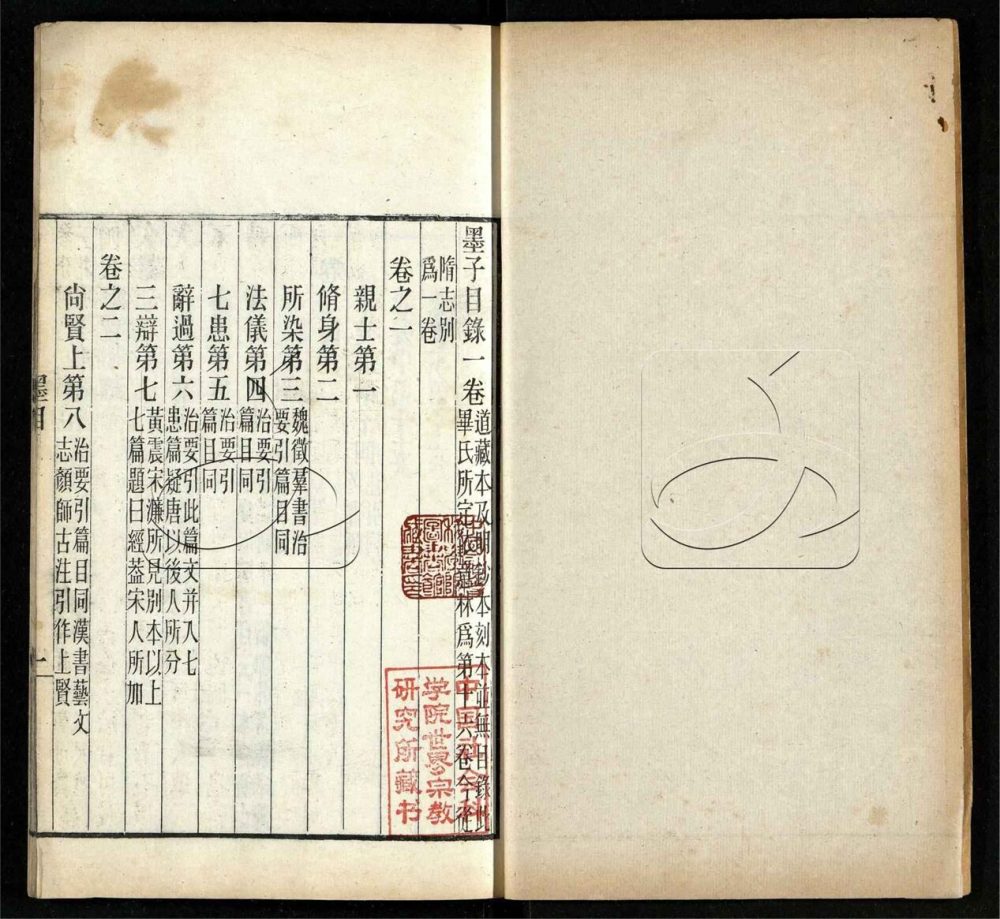 墨子目錄一卷道藏本及明鈔本刻本並無目錄此
畢氏所定依意林爲第十六卷今從
隋志別
爲一卷
卷之一
親士第一
脩身第二
所染第三魏徵羣書治
要引篇目同
法儀第四治要引
篇目同
七患第五治要引
篇目同
辭過第六治要引此篇文并入七
患篇疑唐以後人所分
三辯第七黃震宋濂所見別本以上
七篇題曰經葢宋人所加
卷之二
尙賢上第八治要引篇目同漢書藝文
志顏師古注引作上賢
墨目
一
中国社会科
学院世界宗教
研究所藏书